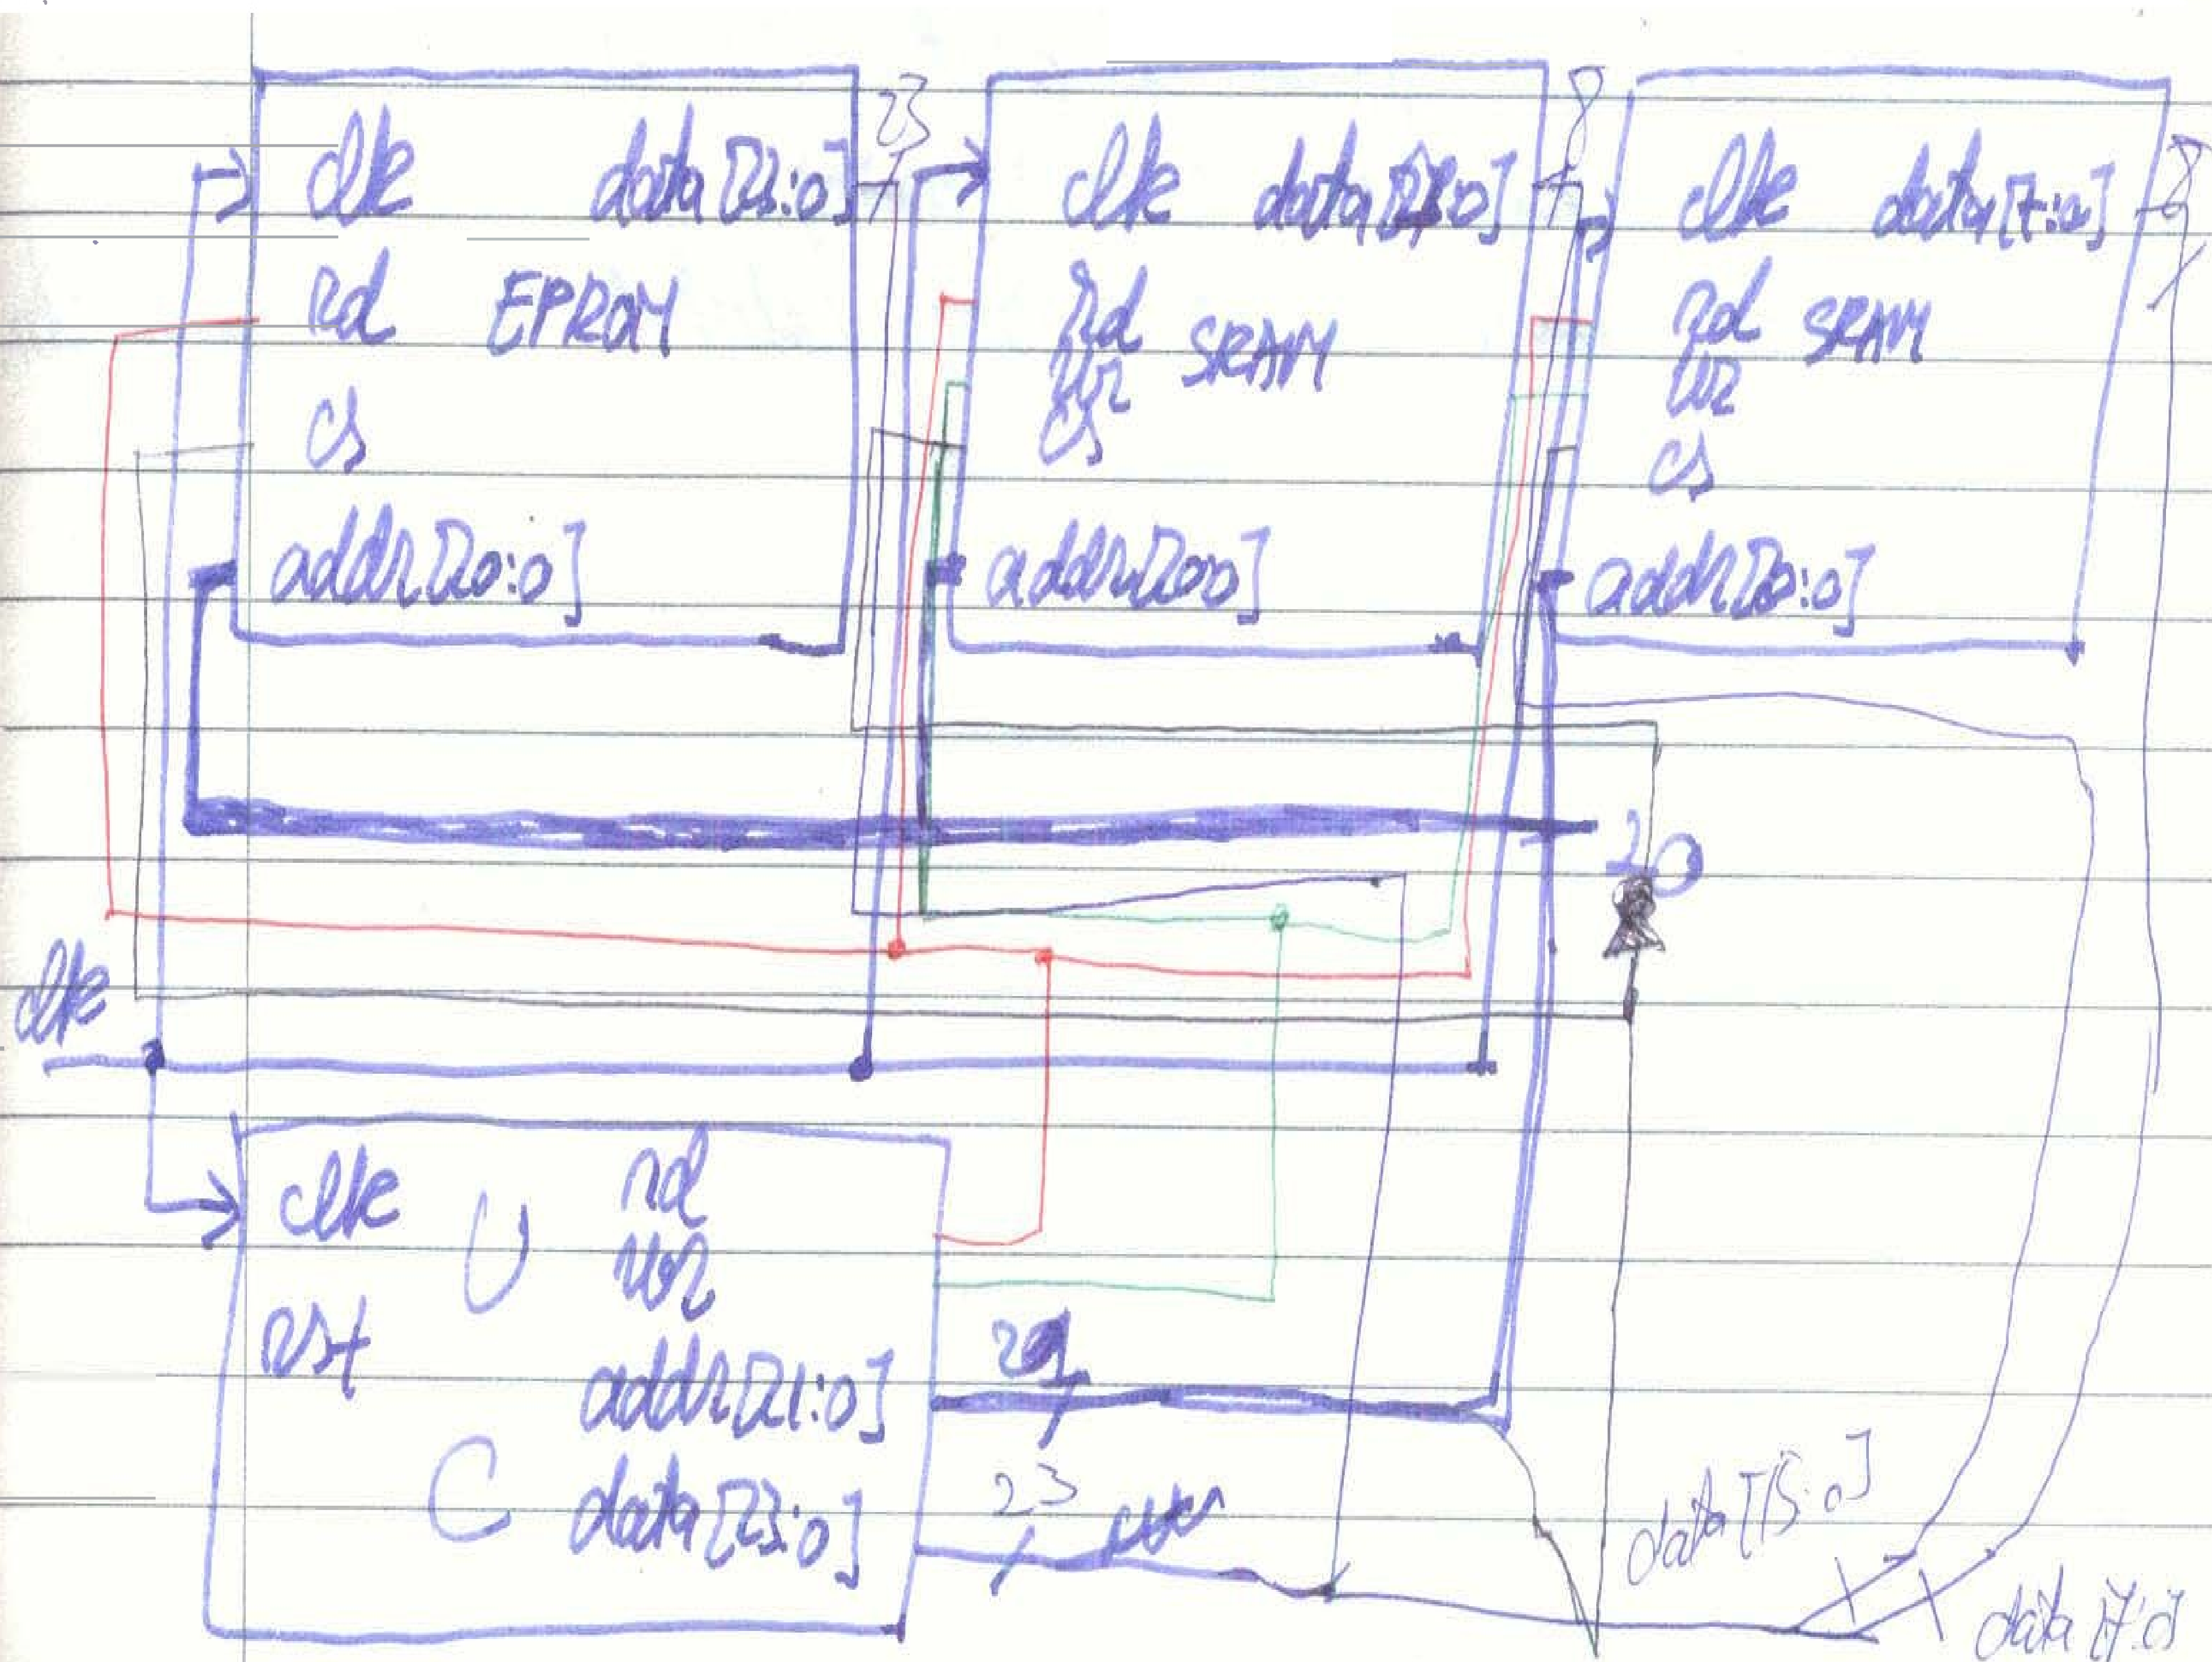 23
8
8
clk data[23:0]
rd EPROM
cs
addr[20:0]
clk
rd SRAM
wr
cs
addr[20:0]
clk data[7:0]
rd SRAM
wr
cs
addr[20:0]
20
clk
clk rd
U wr
rst addr[21:0]
C data[23:0]
23
data[15:0]
data[7:0]